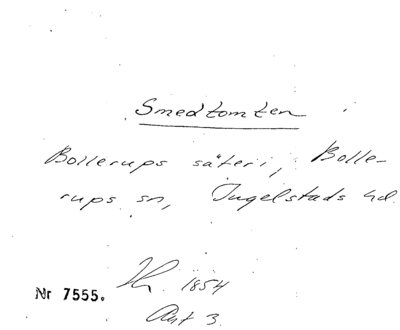 Smedtomten
Bollerups säteri, Bolle-
rups sn, Ingelstads hd
1854
Nr 7555.
Ant 3